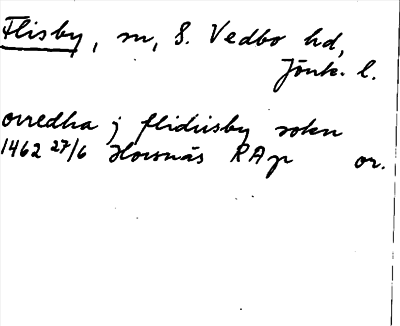 Flisby, sn, S. Vedbo hd,
Jönk. l.
orredha j flidiisby sokn
1462 27/6 Hornäs RAp or.